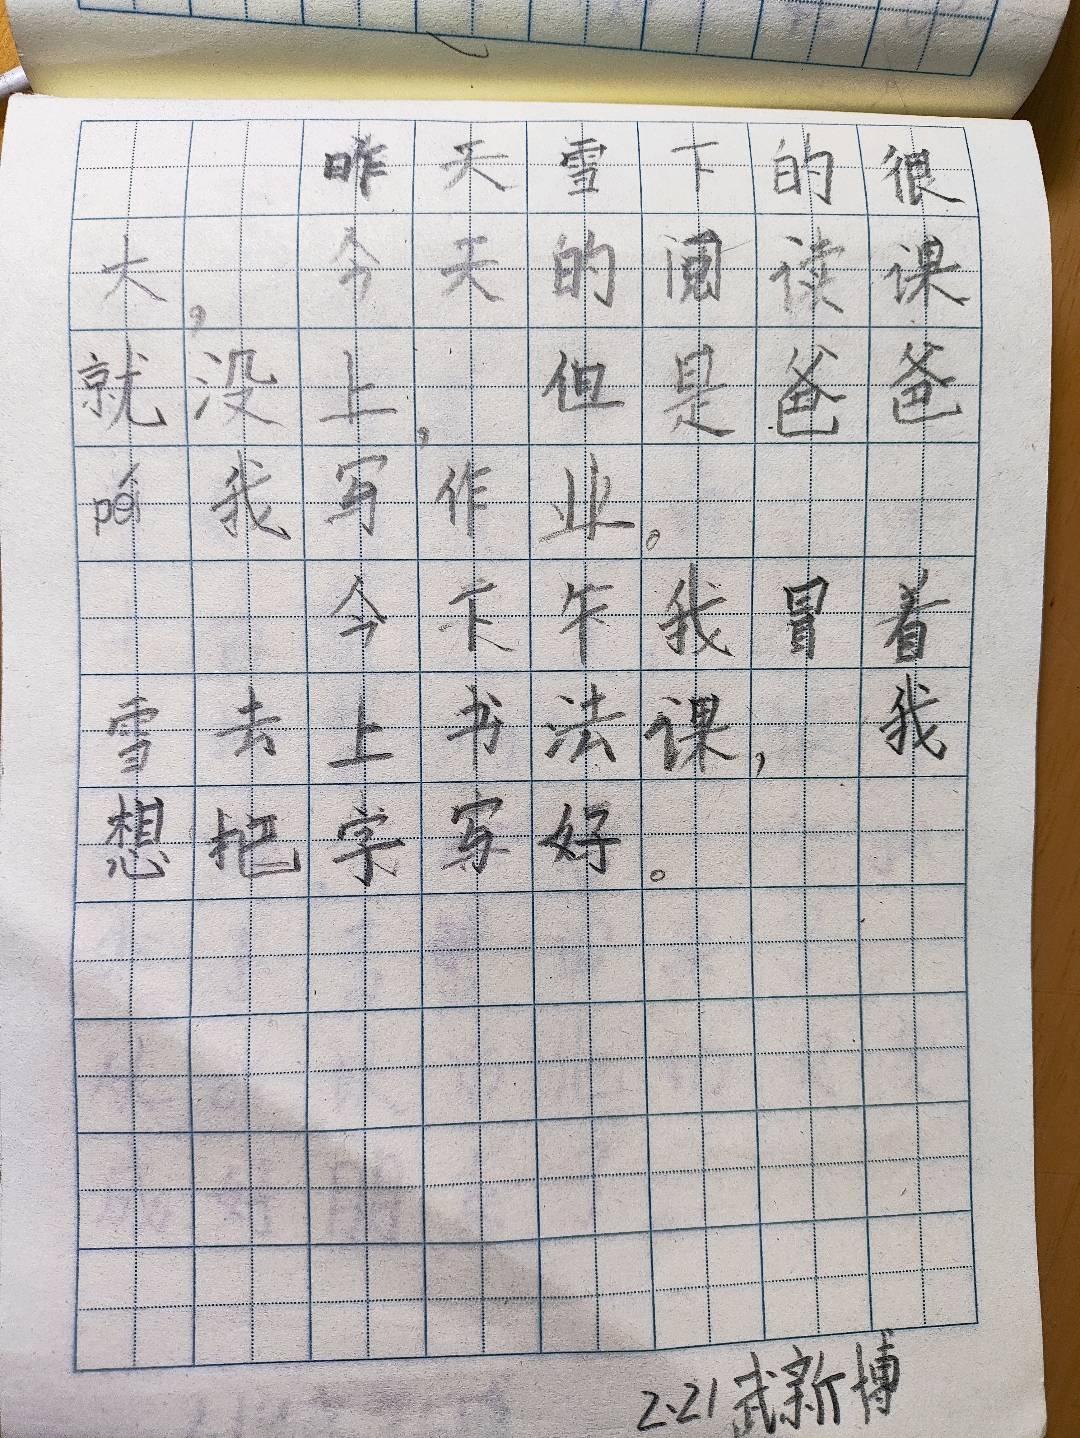 昨天雪下的很
大，今天的阅读课
就没上，但是爸爸
péi我写作业。
今下午我冒着
雪去上书法课，我
想把字写好。
2.21武新博